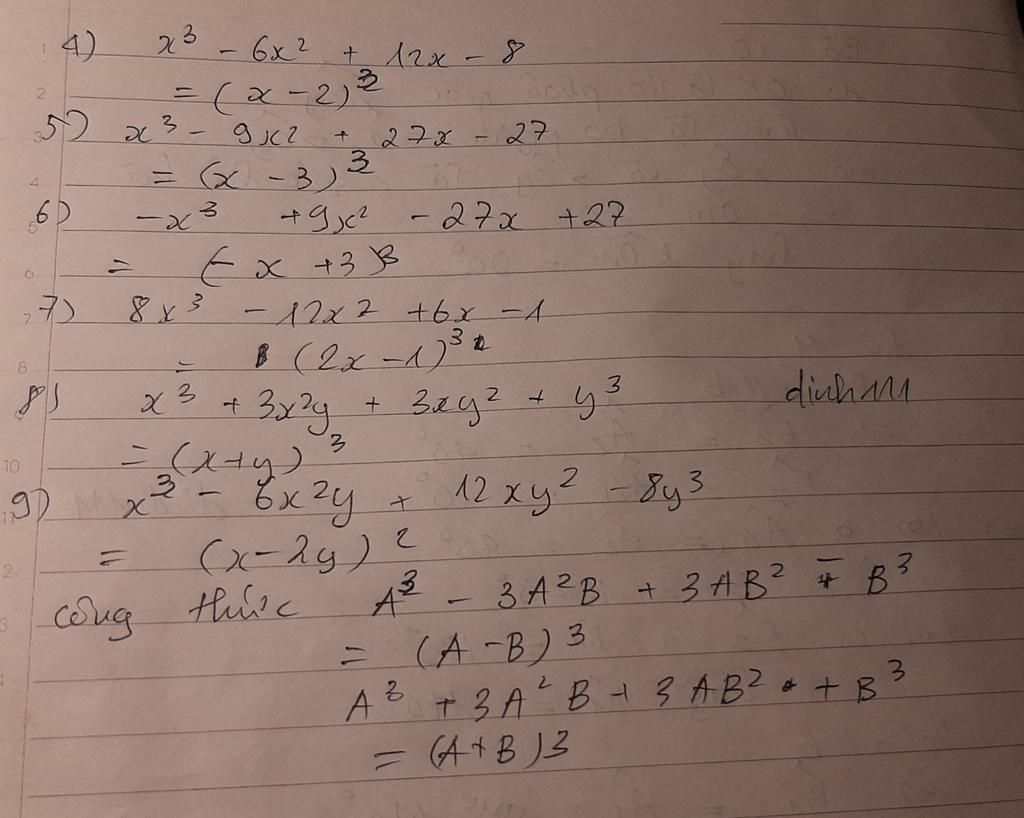 4) x³ - 6x² + 12x - 8
= (x - 2)³
5) x³ - 9x² + 27x - 27
= (x - 3)³
6) -x³ + 9x² - 27x + 27
= (-x + 3)³
7) 8x³ - 12x² + 6x - 1
= (2x - 1)³
8) x³ + 3x²y + 3xy² + y³
= (x + y)³
9) x³ - 6x²y + 12xy² - 8y³
= (x - 2y)²
công thức A³ - 3A²B + 3AB² - B³
= (A - B)³
A³ + 3A²B + 3AB² + B³
= (A + B)3